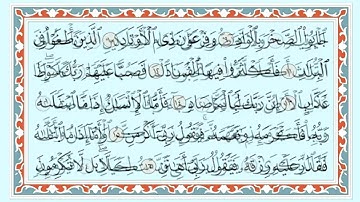 جَابُوا۟ ٱلصَّخْرَ بِٱلْوَادِ ۝٩ وَفِرْعَوْنَ ذِى ٱلْأَوْتَادِ ۝١٠ ٱلَّذِينَ طَغَوْا۟ فِى
ٱلْبِلَـٰدِ ۝١١ فَأَكْثَرُوا۟ فِيهَا ٱلْفَسَادَ ۝١٢ فَصَبَّ عَلَيْهِمْ رَبُّكَ سَوْطَ
عَذَابٍ ۝١٣ إِنَّ رَبَّكَ لَبِٱلْمِرْصَادِ ۝١٤ فَأَمَّا ٱلْإِنسَـٰنُ إِذَا مَا ٱبْتَلَىٰهُ
رَبُّهُۥ فَأَكْرَمَهُۥ وَنَعَّمَهُۥ فَيَقُولُ رَبِّىٓ أَكْرَمَنِ ۝١٥ وَأَمَّآ إِذَا مَا ٱبْتَلَىٰهُ
فَقَدَرَ عَلَيْهِ رِزْقَهُۥ فَيَقُولُ رَبِّىٓ أَهَـٰنَنِ ۝١٦ كَلَّا بَل لَّا تُكْرِمُونَ